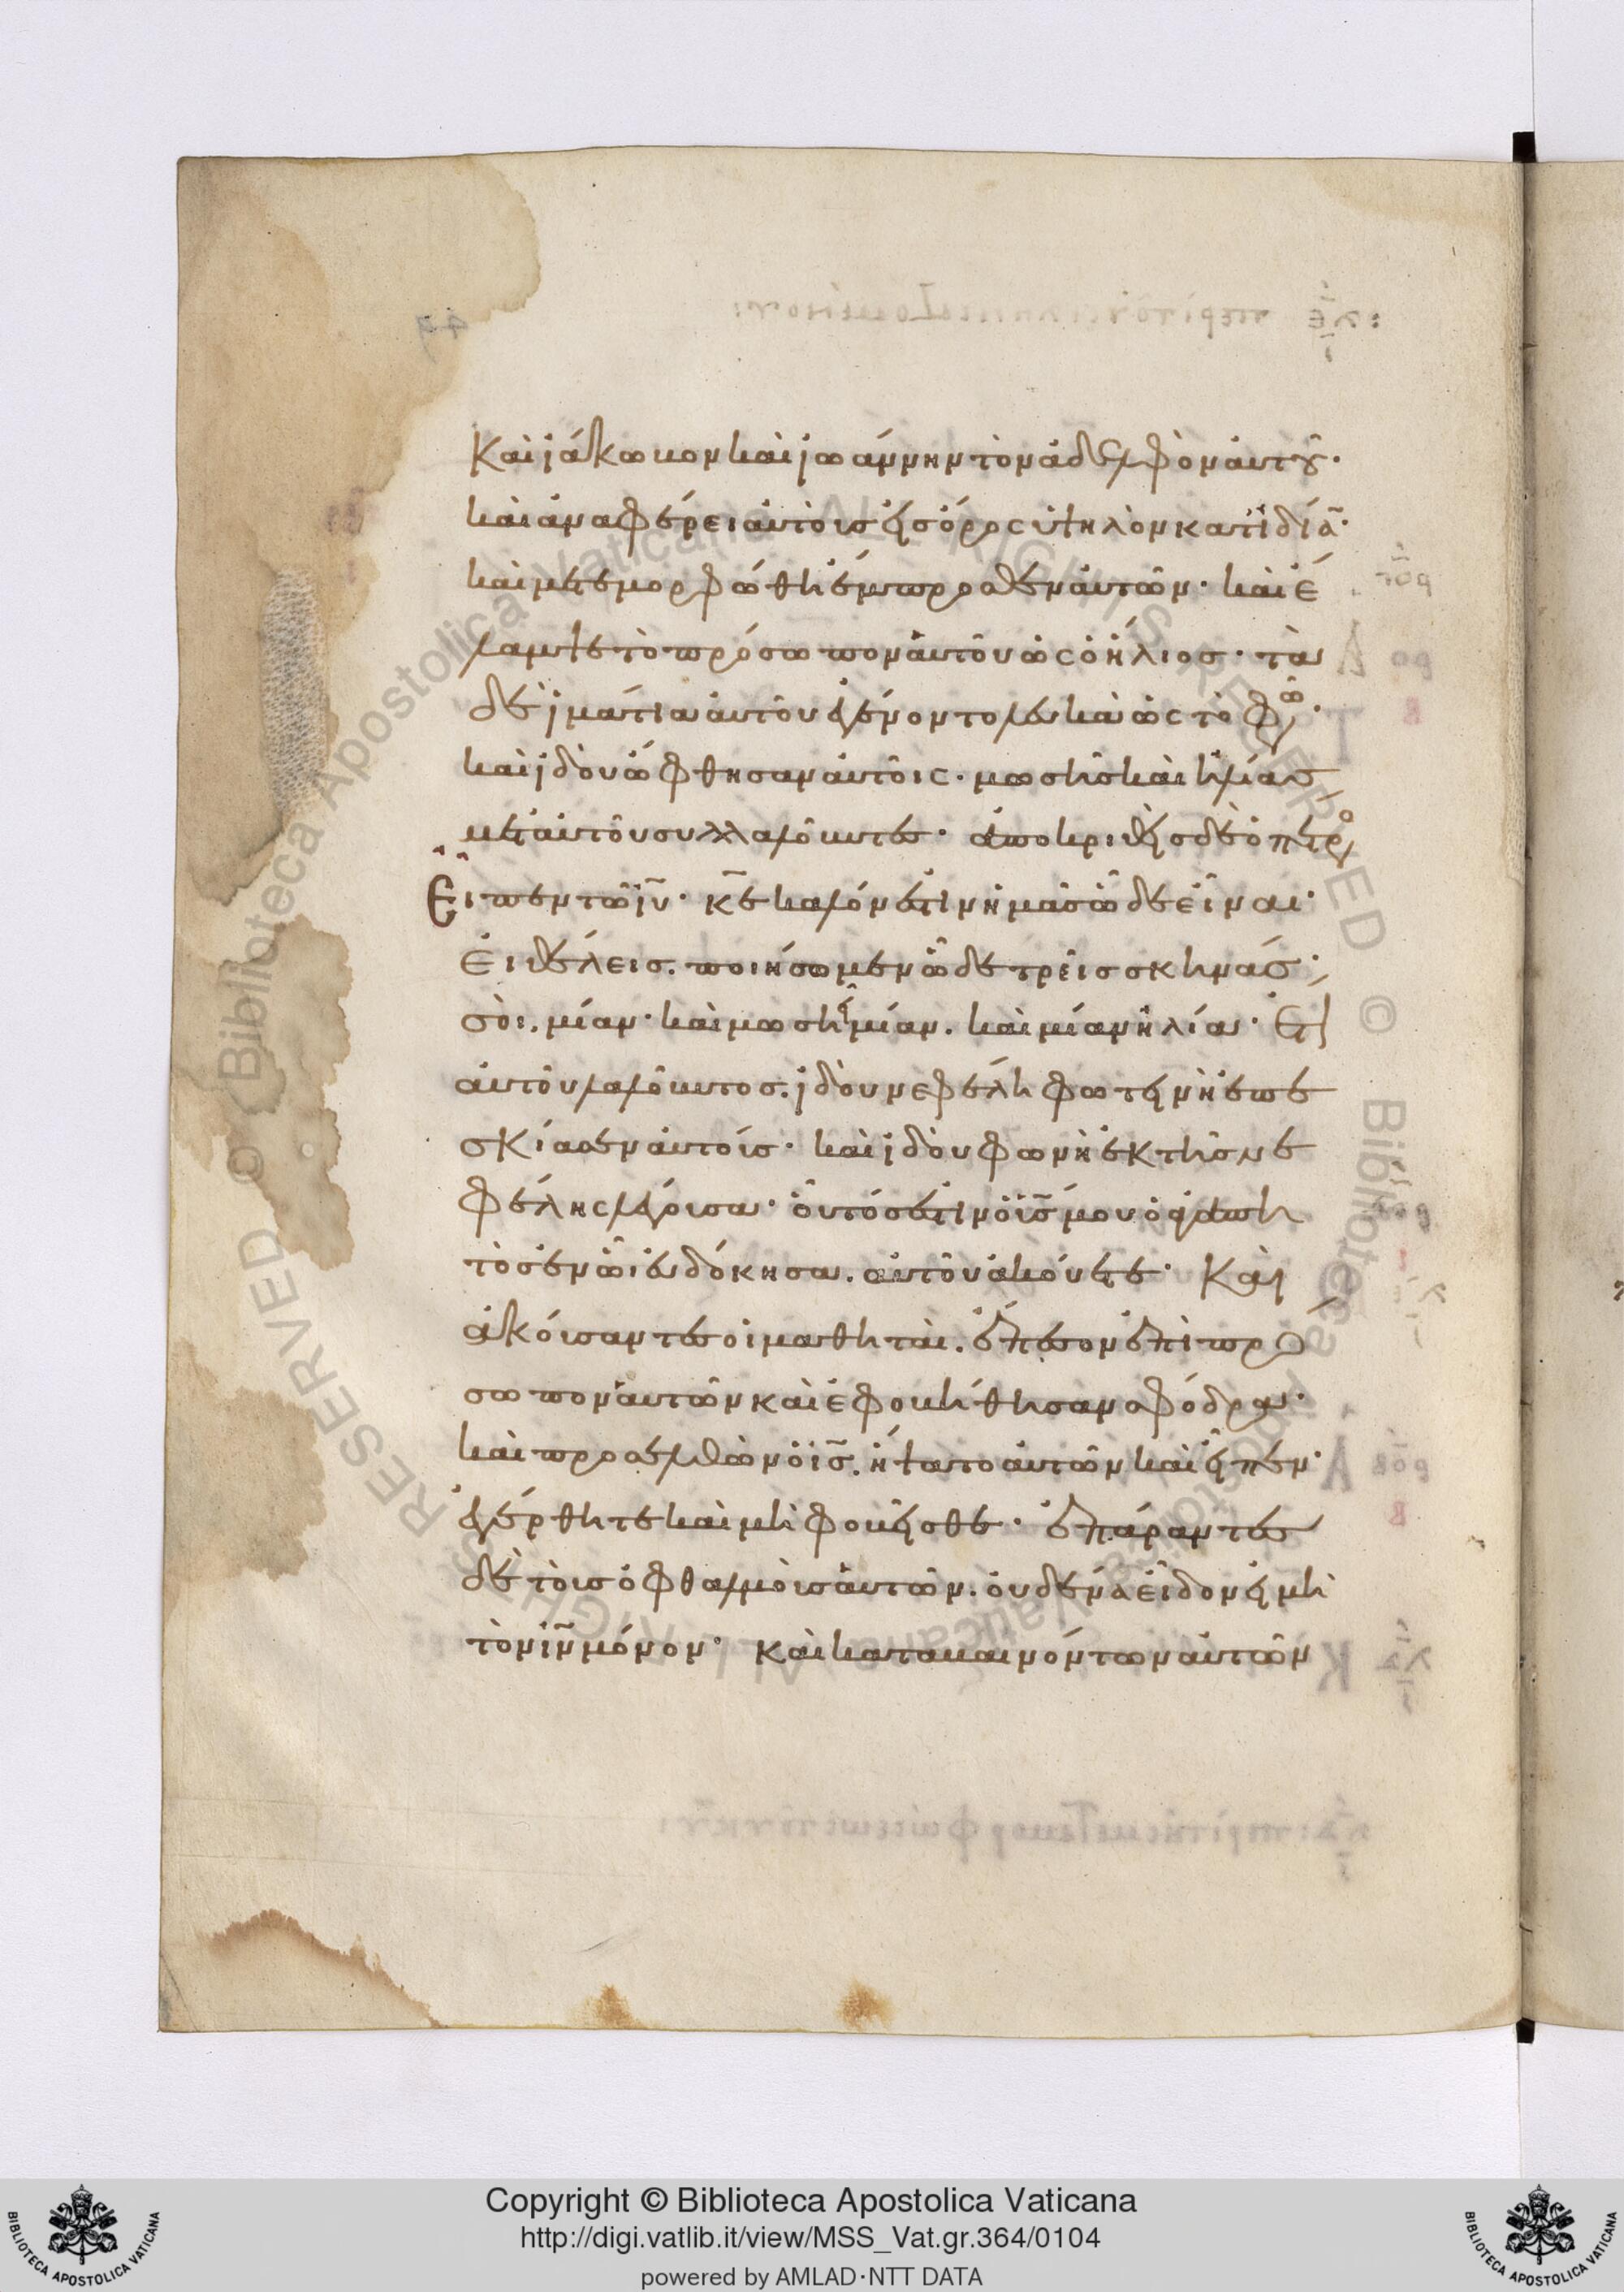 Καὶ ἰάκωβον καὶ ἰωάννην τὸν ἀδελφὸν αὐτοῦ·
καὶ ἀναφέρει αὐτοὺς εἰς ὄρος ὑψηλὸν κατ ἰδίᾱ·
καὶ μετεμορφώθη ἔμπροσθεν αὐτῶν· καὶ ἔ
λαμψε τὸ πρόσωπον αὐτοῦ ὡς ὁ ἥλιος· τὰ
δὲ ἱμάτια αὐτοῦ ἐγένοντο λευκὰ ὡς τὸ φῶ·
καὶ ἰδοὺ ὤφθησαν αὐτοῖς· μωσῆς καὶ ἠλίας
μετ αὐτοῦ συλλαλοῦντες· ἀποκριθεὶς δὲ ὁ πέτρο
Εἶπεν τῶ ιῡ· κε̄ καλόν ἐστιν ἡμᾶς ὧδε εἶναι·
Εἰ θέλεις. ποιήσωμεν ὧδε τρεῖς σκηνάς·
σοὶ. μίαν· καὶ μωσῆ μίαν. καὶ μίαν ἠλία· Ἔτι
αὐτοῦ λαλοῦντος. ἰδοὺ νεφέλη φωτεινὴ ἐπε
σκίασεν αὐτούς· καὶ ἰδοὺ φωνὴ ἐκ τῆς νε
φέλης λέγουσα· οὗτός ἐστιν ὁ ϊς̄ μου ὁ ἀγαπη
τὸς ἐν ῶ εὐδόκησα. αὐτοῦ ἀκούετε· Καὶ
ἀκούσαντες οἱ μαθηταὶ. ἔπεσον ἐπὶ πρό
σωπον αὐτῶν καὶ ἐφοβήθησαν σφόδρα·
καὶ προσελθὼν ὁ ις̄. ἥψατο αὐτῶν καὶ εἶπεν·
ἐγέρθητε καὶ μὴ φοβεῖσθε· ἐπάραντες
δὲ τοὺς ὀφθαλμοὺς αὐτῶν. οὐδένα εἶδον εἰ μὴ
τὸν ιν̄ μόνον· καὶ καταβαινόντων αὐτῶν
Copyright © Biblioteca Apostolica Vaticana
http://digi.vatlib.it/view/MSS_Vat.gr.364/0104
powered by AMLAD·NTT DATA